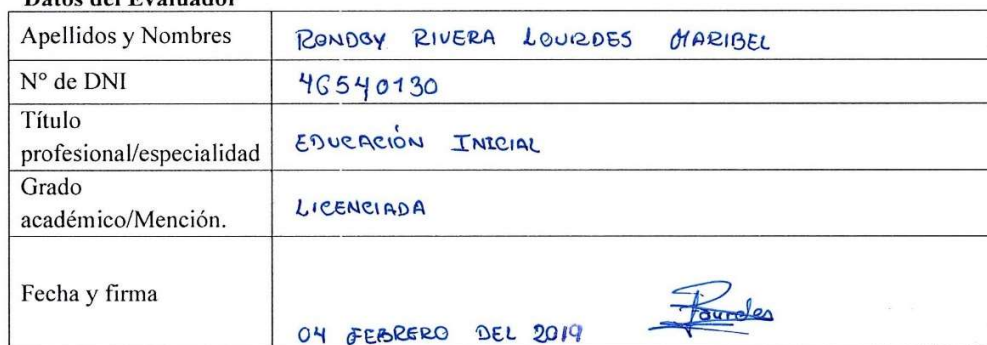 Datos del Evaluador
Apellidos y Nombres RONDOY RIVERA LOURDES MARIBEL
N° de DNI 46540130
Título
profesional/especialidad EDUCACIÓN INICIAL
Grado
académico/Mención. LICENCIADA
Fecha y firma 04 FEBRERO DEL 2019 Lourdes